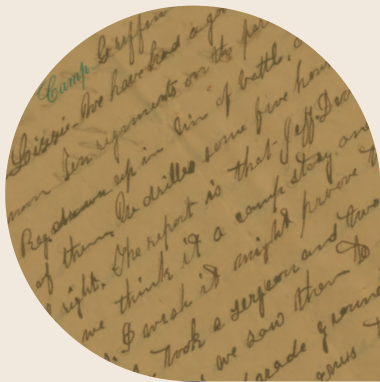 Camp Griffin
Lizzie. We have had a
noon. Ten regiments on the
Reg drawn up in line of battle,
of them. We drilled some five
right. The report is that Jeff. Da
we think it a camp story an
. I wish it might proove
took a sergeon and two
we saw them
parade ground